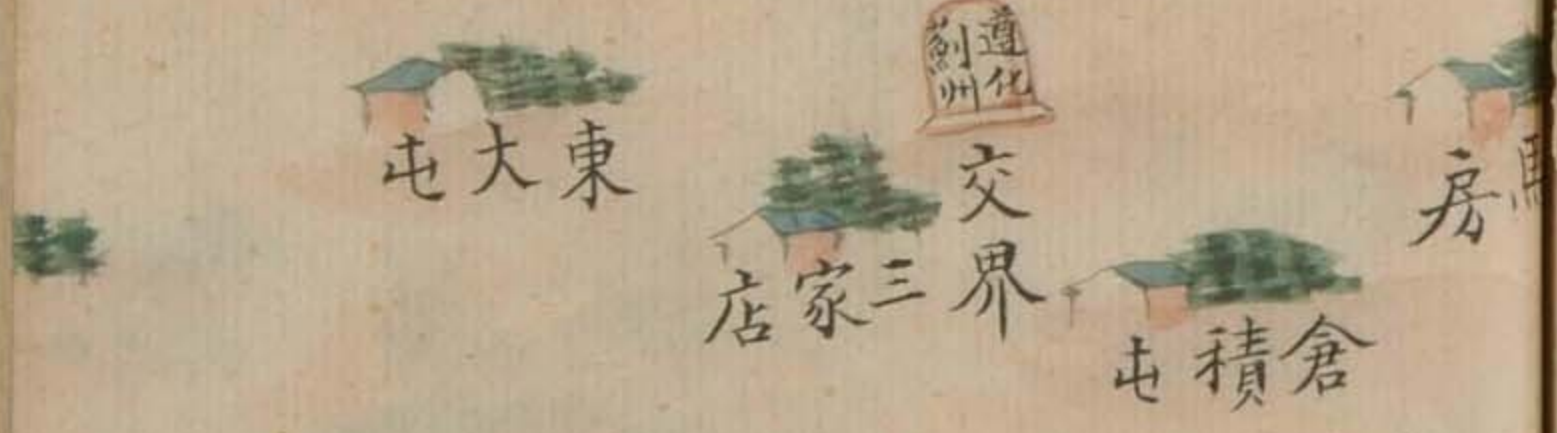 馬房
遵化
薊州
交界
倉積屯
三家店
東大屯